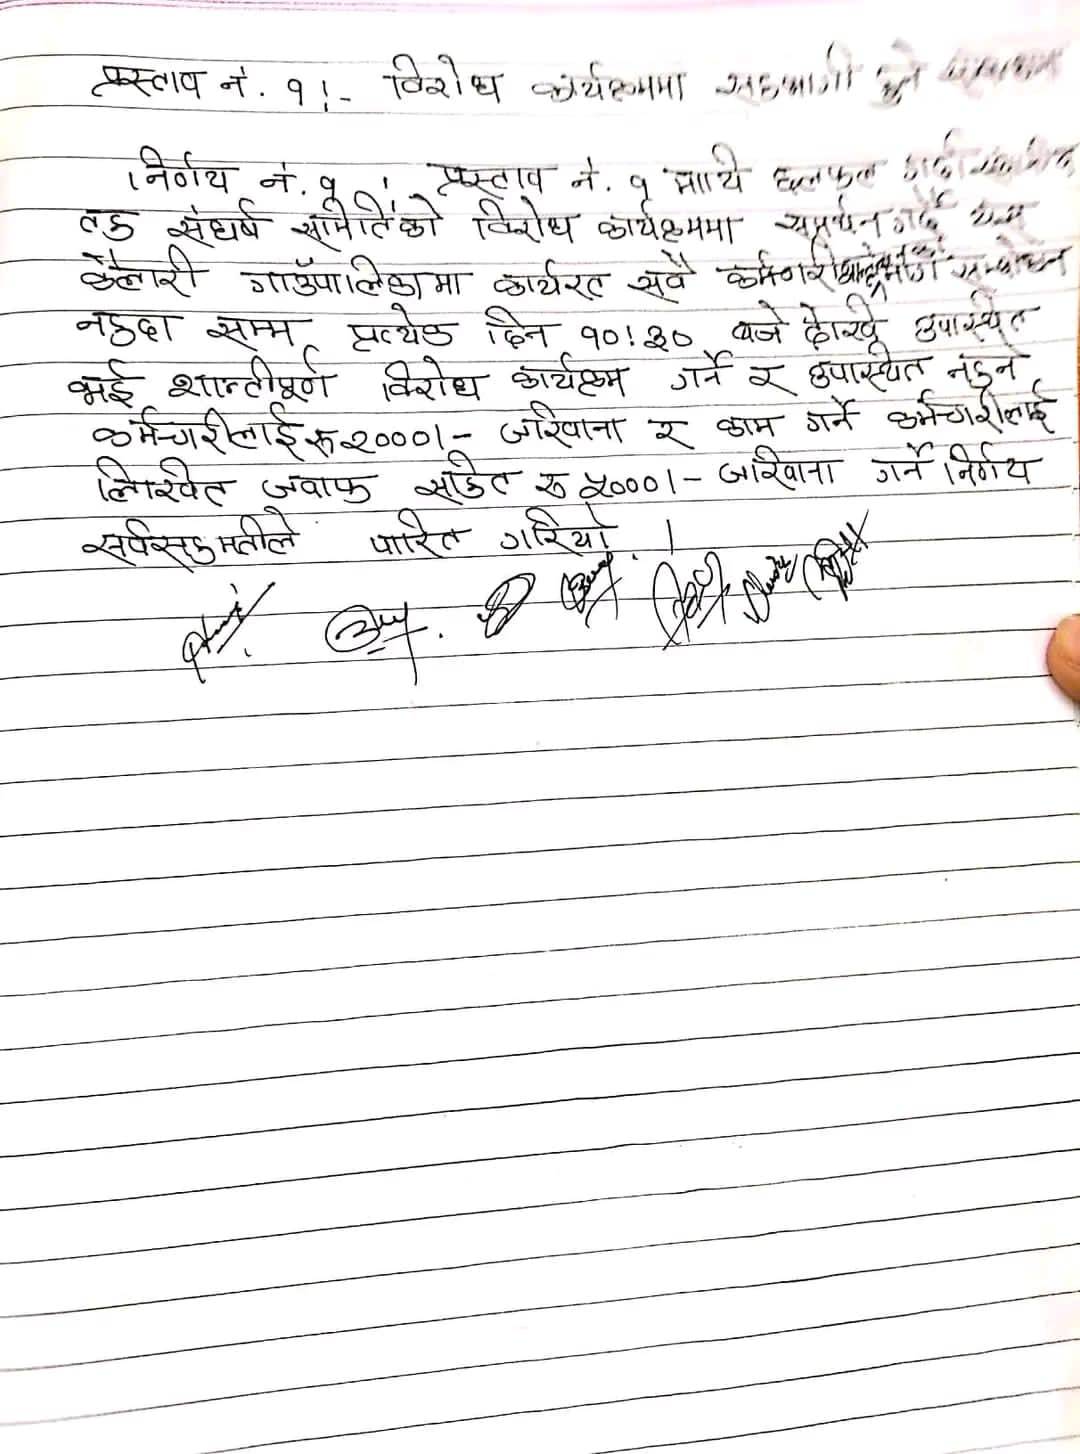 प्रस्ताव नं. १।- विरोध कार्यक्रममा सहभागी हुने
निर्णय नं. १ : प्रस्ताव नं. १ माथि छलफल गर्दा
तह संघर्ष समितिको विरोध कार्यक्रममा समर्थन गर्दै यस
कैलारी गाउँपालिकामा कार्यरत सवै कर्मचारी सम्बोधन
नहुदा सम्म प्रत्येक दिन १०।३० वजे देखि उपास्थित
भई शान्तीपूर्ण विरोध कार्यक्रम गर्ने र उपास्थित नहुने
कर्मचारीलाई रू २०००।- जरिवाना र काम गर्ने कर्मचारीलाई
लिखित जवाफ सहित रू ५०००।- जरिवाना गर्ने निर्णय
सर्वसहमतीले पारित गरियो ।